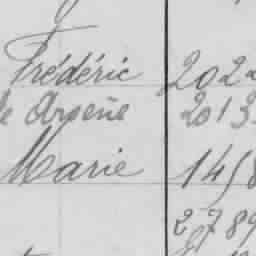 Frédéric 202
le Arsène 2013
Marie 1458
2789